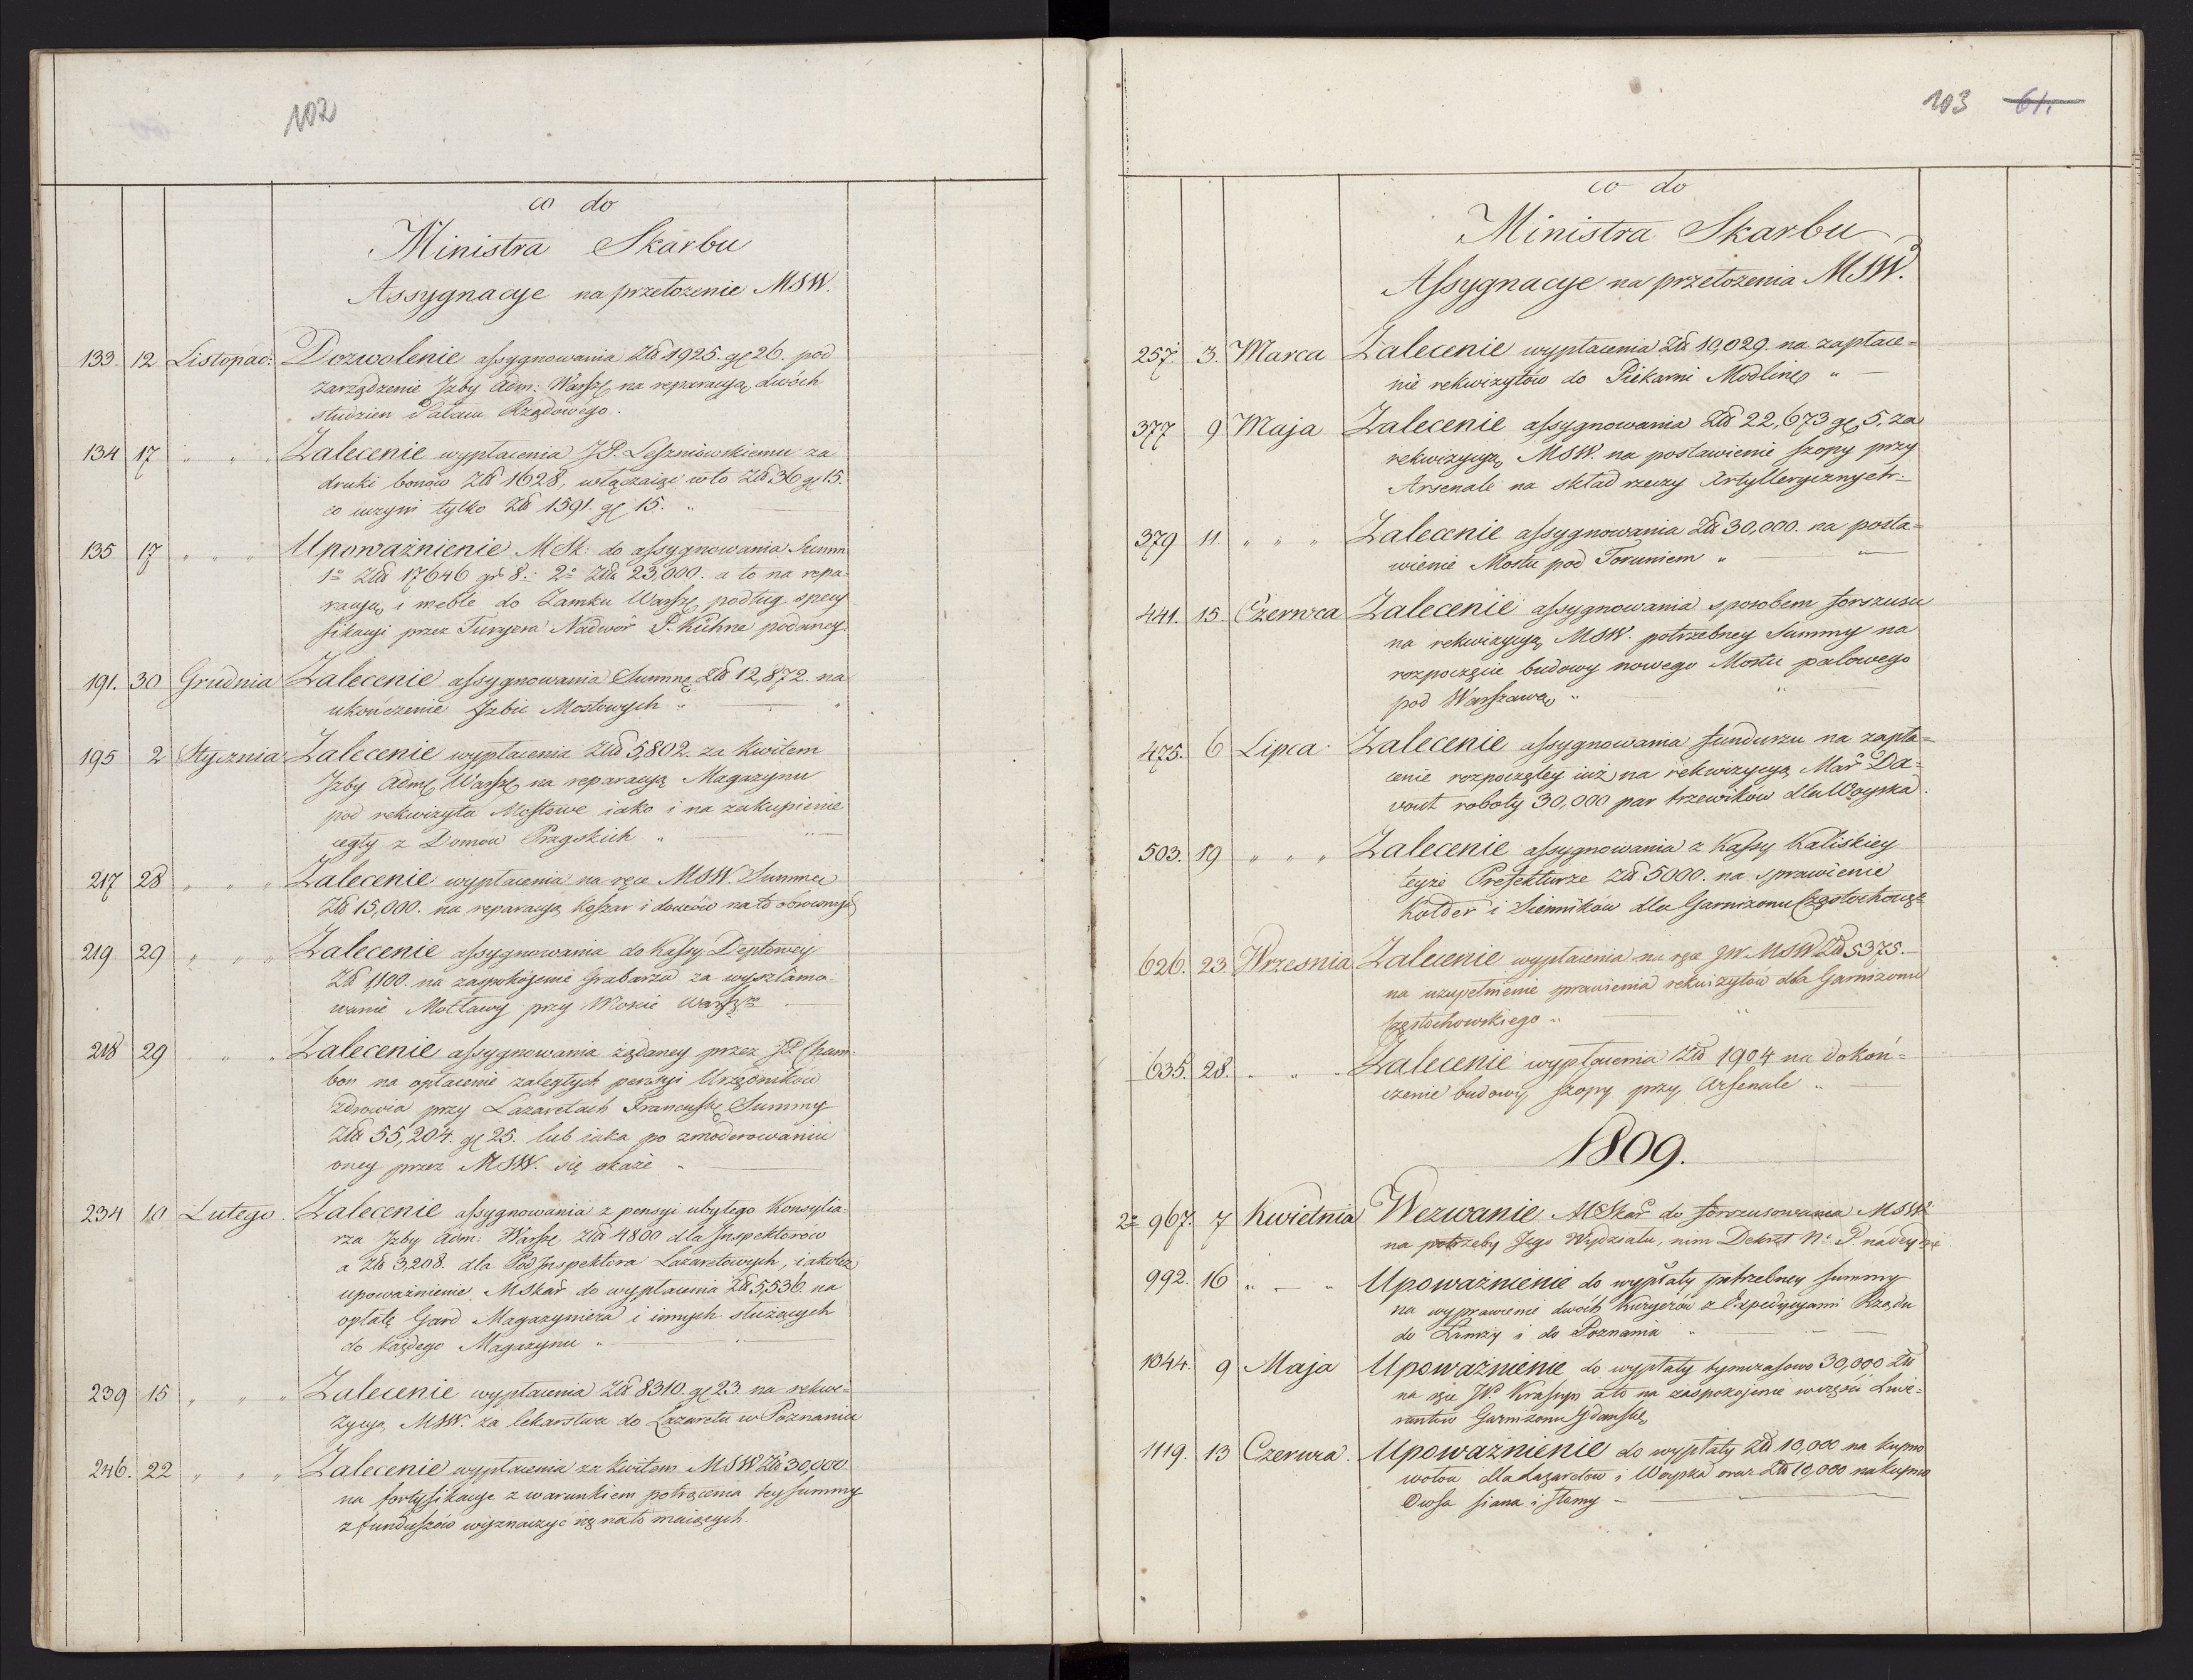 102
co do
Ministra Skarbu
Assygnacye na przełożenie MSW.
133. 12 Listopad: Dozwolenie assygnowania Złł 1925. gr 26. pod
zarządzenie Izby Adm: Warsz. na reparacyą dwóch
studzien Pałacu Rządowego.
134 17 " " " Zalecenie wypłacenia J.P. Leszniowskiemu za
druki bonow Złł 1628, włączaiąc w to Złł 36 gr 15.
co uczyni tylko Złł 1591. gr 15. "
135 17 " " " Upoważnienie MSk: do assygnowania Summ
1o Złł 17646 gr 8.: 2o Złł 23,000. a to na repa-
racyą i meble do Zamku Warsz. podług specy
fikacyi przez Furyera Nadwor P. Kühne podaney.
191. 30 Grudnia Zalecenie assygnowania Summę Złł 12,872. na
ukończenie Izbic Mostowych "
195 2 Stycznia Zalecenie wypłacenia Złł 5,802. za kwitem
Izby Adm. Warsz. na reparacyą Magazynu
pod rekwizyta Mostowe iako i na zakupienie
cegły z Domow Pragskich "
217 28 " " " Zalecenie wypłacenia na ręce MSW. Summę
Złł 15,000. na reparacyą Koszar i domów na to obroconych
219 29 " " " Zalecenie assygnowania do Kassy Deptowey
Złł 1,100. na zaspokojenie Grabarza za wyszlamo-
wanie Mottawy przy
218 29 " " Zalecenie assygnowania żądaney przez J.P. Cham-
bon na opłacenie zaległych pensyi Urzędników
zdrowia przy Lazaretach Francuskich Summy
Złł 55,204. gr 25. lub iaka po zmoderowaniu
oney przez MSW. się okaże "
234 10 Lutego. Zalecenie assygnowania z pensyi ubyłego Konsylia-
rza Izby Adm: Warsz. Złł 4800 dla Inspektorów
a Złł 3,208. dla PodInspektora Lazaretowych, iakoteż
upoważnienie MSkar do wypłacenia Złł 5,536. na
opłatę Gard Magazyniera i innych służących
do każdego Magazynu "
239 15 " " " Zalecenie wypłacenia Złł 8310. gr 23. na rekwi-
zycyą MSW. za lekarstwa do Lazaretu w Poznaniu
246. 22 " " " Zalecenie wypłacenia za kwitem MSW Złł 30,000.
na fortyfikacye z warunkiem potrącenia tey summy
z funduszów wyznaczyć się na to maiących.
103 61.
co do
Ministra Skarbu
Assygnacye na przełożenia MSW.
257. 3. Marca Zalecenie wypłacenia Złł 10,029. na zapłace-
nie rekwizytów do Piekarni Modlińs. "
377 9 Maja Zalecenie assygnowania Złł 22,673 gr 5. za
rekwizycyą MSW. na postawienie szopy przy
Arsenale na skład rzeczy Artylleryicznych.
379 11. " " " Zalecenie assygnowania Złł 30,000. na posta-
wienie Mostu pod Toruniem "
441. 15. Czerwca Zalecenie assygnowania sposobem forszusu
na rekwizycyą MSW. potrzebney Summy na
rozpoczęcie budowy nowego Mostu palowego
pod Warszawą "
475. 6 Lipca. Zalecenie assygnowania funduszu na zapła-
cenie rozpoczętey iuż na rekwizycyą Mar Da-
vout roboty 30,000 par trzewików dla Woyska.
503. 19 " " " Zalecenie assygnowania z Kassy Kaliskiey
teyże Prefekturze Złł 5000. na sprawienie
Kołder i Sienników dla Garnizonu Częstochowsk
626. 23. Wrzesnia Zalecenie wypłacenia na ręce JW MSW Złł 5375.-
na uzupełnienie sprawienia rekwizytów dla Garnizonu
Częstochowskiego "
635. 28. " " " Zalecenie wypłacenia Złł 1904 na dokoń-
czenie budowy szopy przy Arsenale "
1809.
2o 967. 7 Kwietnia Wezwanie MSkar do forszusowania MSW.
na potrzeby Jego Wydziału, nim Dekret N. P. nadeydzie
992. 16 " - " Upoważnienie do wypłaty potrzebney summy
na wyprawienie dwóch Kuryerów z Expedycyami Rządu
do Łomży i do Poznania "
1044. 9 Maja Upoważnienie do wypłaty tymczasowo 30,000 Złł
na ręce JP. a to na zaspokojenie w części Liwe-
rantów Garnizonu Gdańsk.
1119. 13 Czerwca. Upoważnienie do wypłaty Złł 10,000 na kupno
wołow dla Lazaretow i Woyska oraz Złł 10,000 na kupno
Owsa siana i słomy -